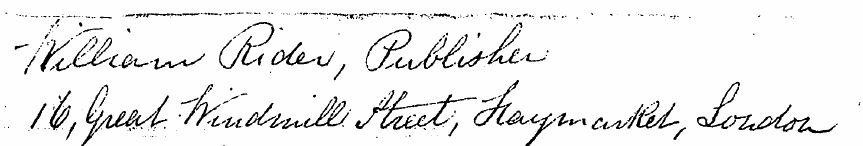 William Rider, Publisher
16, Great Windmill Street, Haymarket, London